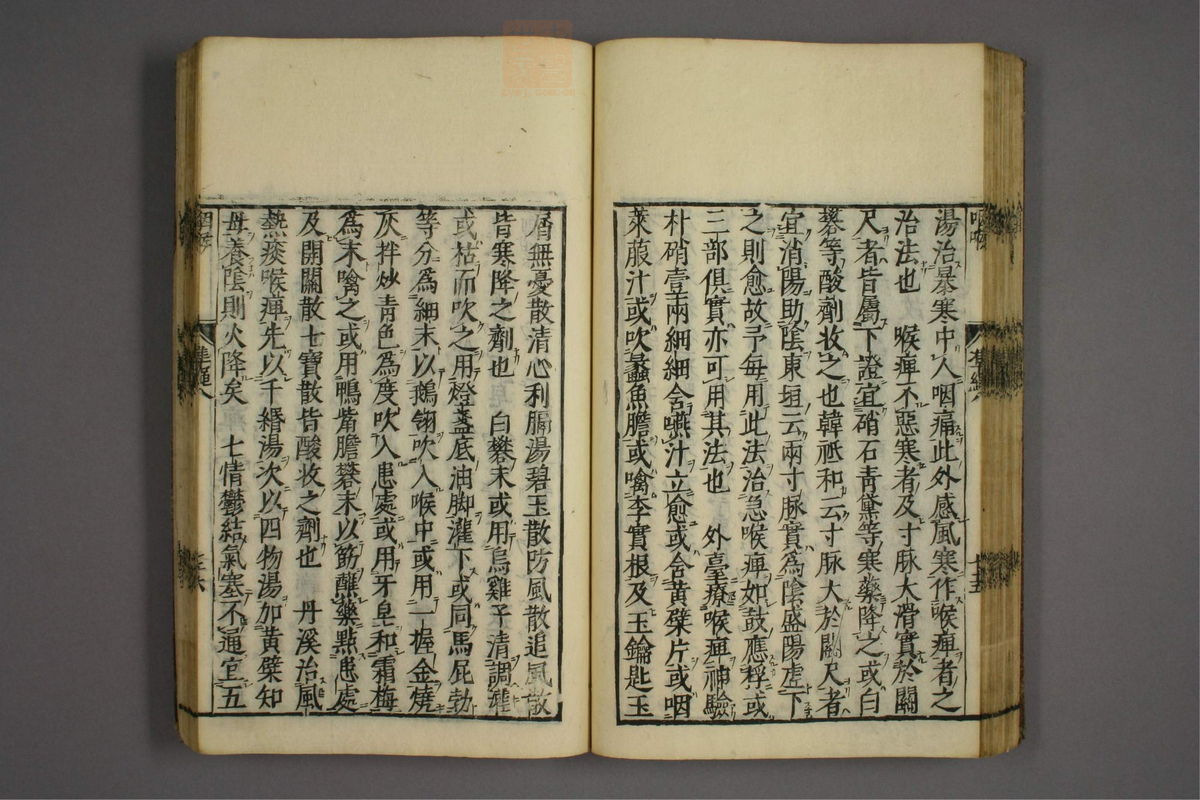 湯治暴寒中人咽痛此外感風寒作喉痺者之
治法也　喉痺不惡寒者及寸脉大滑實於關
尺者皆屬下證宜硝石青黛等寒藥降之或白
礬等酸劑收之也韓祗和云寸脉大於關尺者
宜消陽助陰東垣云兩寸脉實爲陰盛陽虛下
之則愈故予每用此法治急喉痺如鼓應桴或
三部俱實亦可用其法也　外臺療喉痺神驗
朴硝壹兩細細含嚥汁立愈或含黃檗片或咽
萊菔汁或吹蠡魚膽或噙李實根及玉鑰匙玉
屑無憂散清心利膈湯碧玉散防風散追風散
皆寒降之劑也　白礬末或用烏雞子清調灌
或枯而吹之用燈盞底油脚灌下或同馬屁勃
等分爲細末以鵝翎吹入喉中或用一握金燒
灰拌炒青色爲度吹入患處或用牙皂和霜梅
爲末噙之或用鴨觜膽礬末以筯蘸藥點患處
及開關散七寶散皆酸收之劑也　丹溪治風
熱痰喉痺先以千緡湯次以四物湯加黃檗知
母養陰則火降矣　七情鬱結氣塞不通宜五